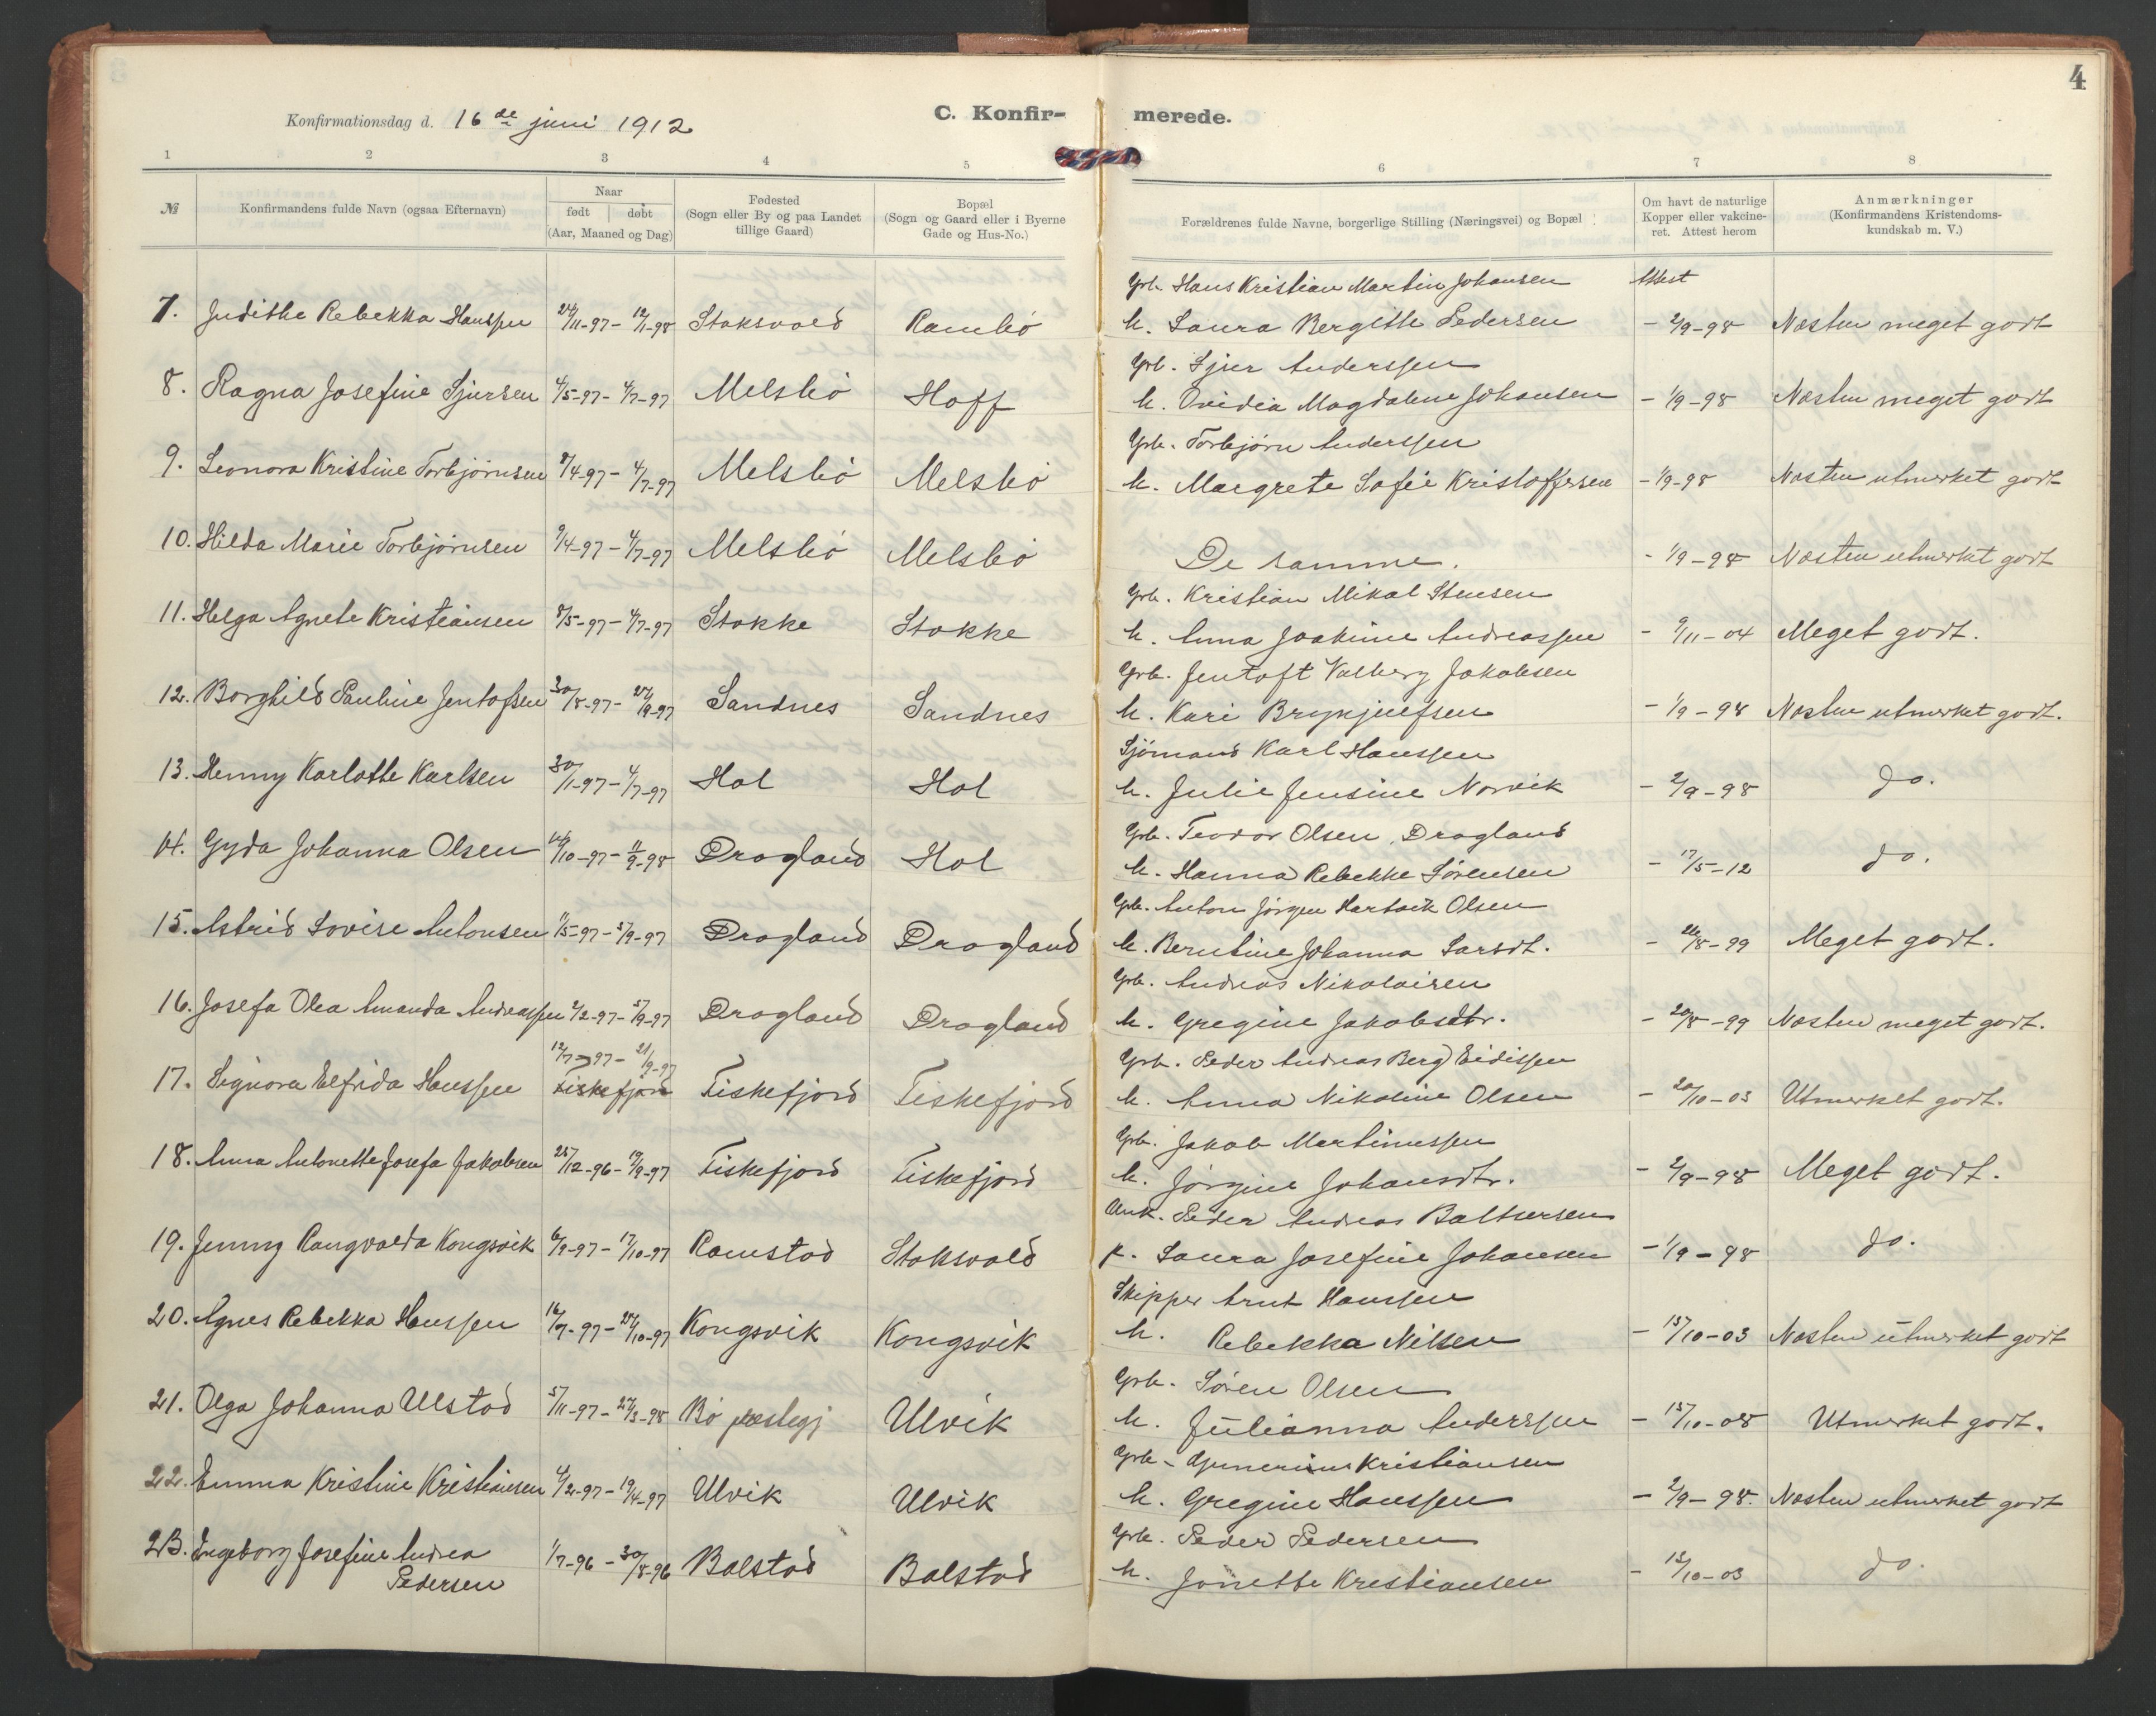 4
Konfirmationsdag d. 16de juni 1912
C. Konfir- merede.
1 2 3 4 5 6 7 8
№ Konfirmandens fulde Navn (ogsaa Efternavn)
Naar
født døbt
(Aar, Maaned og Dag)
Fødested
(Sogn eller By og paa Landet
tillige Gaard)
Bopæl
(Sogn og Gaard eller i Byerne
Gade og Hus-No.)
Forældrenes fulde Navne, borgerlige Stilling (Næringsvei) og Bopæl
Om havt de naturlige
Kopper eller vakcine-
ret. Attest herom
Anmærkninger
(Konfirmandens Kristendoms-
kundskab m. V.)
Grb. Hans Kristian Martin Johansen Attest
7. Judithe Rebekka Hanssen 24/11-97 - 12/1-98 Stoksvold Rambø h. Laura Bergitte Pedersen - 2/9-98 Næsten meget godt
Grb. Sjur Anderssen
8. Ragna Josefine Sjursen 4/5-97 - 4/7-97 Melsbø Hoff h. Ovidia Magdalene Johansen - 1/9-98 Næsten meget godt
Grb. Torbjørn Anderssen
9. Leonora Kristine Torbjørnsen 9/4-97 - 4/7-97 Melsbø Melsbø h. Margrete Sofie Kristoffersen - 1/9-98 Næsten utmerket godt
10. Hilda Marie Torbjørnsen 9/4-97 - 4/7-97 Melsbø Melsbø De samme. - 1/9-98 Næsten utmerket godt
Grb. Kristian Mikal Stensen
11. Helga Agnete Kristiansen 8/5-97 - 4/7-97 Stokke Stokke h. Anna Joakime Andreassen - 9/11-04 Meget godt.
Grb. Jentoft Valberg Jakobsen
12. Borghild Pauline Jentofsen 30/8-97 - 24/9-97 Sandnes Sandnes h. Kari Brynjulfsen - 1/9-98 Næsten utmerket godt.
Sjømand Karl Hanssen
13. Henny Karlotte Karlsen 30/1-97 - 4/7-97 Hol Hol h. Julie Jensine Norvik - 2/9-98 do.
Grb. Teodor Olsen, Dragland
14. Gyda Johanna Olsen 14/10-97 - 11/9-98 Dragland Hol h. Hanna Rebekke Sørensen - 17/5-12 do.
Grb. Anton Jørgen Hartvik Olsen
15. Astrid Lovise Antonsen 11/5-97 - 5/9-97 Dragland Dragland h. Berntine Johanna Larsdt. - 26/8-99 Meget godt.
Grb. Andreas Nikolaisen
16. Josefa Olea Amanda Andreassen 2/2-97 - 5/9-97 Dragland Dragland h. Gregine Jakobsdtr. - 20/8-99 Næsten meget godt.
12/7-97 - 21/9-97 Grb. Peder Andreas (Berg) Eidissen
17. Signora Elfrida Hanssen Fiskefjord Fiskefjord Fiskefjord h. Anna Nikoline Olsen - 20/10-03 Utmerket godt.
Grb. Jakob Martinussen
18. Anna Antonette Josefa Jakobsen 25/12-96 - 19/9-97 Fiskefjord Fiskefjord h. Jørgine Johansdtr. - 2/9-98 Meget godt.
Ark. Peder Andreas Baltsersen
19. Jenny Rangvalda Kongsvik 6/9-97 - 17/10-97 Ramstad Stoksvold p. Laura Josefine Johansen - 1/9-98 do.
Skipper Arnt Hanssen
20. Agnes Rebekka Hanssen 16/7-97 - 24/10-97 Kongsvik Kongsvik h. Rebekka Nilsen - 15/10-03 Næsten utmerket godt
Grb. Søren Olsen
21. Olga Johanna Ulstad 5/11-97 - 27/3-98 Bø prestegj Ulvik h. Julianna Anderssen - 15/10-08 Utmerket godt.
Grb. Gunerius Kristiansen
22. Emma Kristine Kristiansen 4/2-97 - 19/4-97 Ulvik Ulvik h. Gregine Hanssen - 2/9-98. Næsten utmerket godt
Grb. Peder Pedersen
23. Ingeborg Josefine Andrea 1/7-96 - 30/8-96 Balstad Balstad h. Jonette Kristiansen - 12/10-03 do.
Pedersen